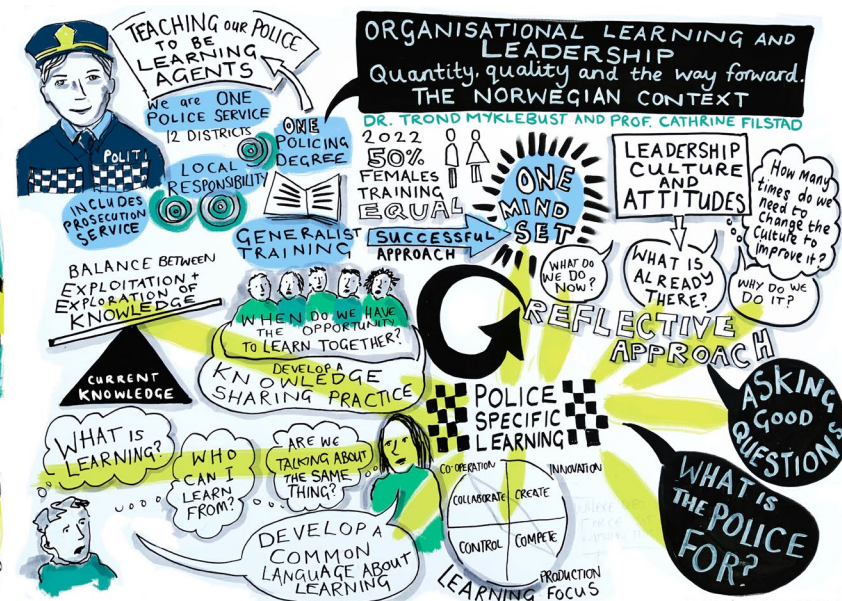 TEACHING OUR POLICE
TO BE
LEARNING
AGENTS
ORGANISATIONAL LEARNING AND
LEADERSHIP
Quantity, quality and the way forward.
THE NORWEGIAN CONTEXT
DR. TROND MYKLEBUST AND PROF. CATHRINE FILSTAD
We are ONE
POLICE SERVICE
12 DISTRICTS
POLITI
ONE
POLICING
DEGREE
LOCAL
RESPONSIBILITY
INCLUDES
PROSECUTION
SERVICE
2022
50%
FEMALES
TRAINING
EQUAL
GENERALIST
TRAINING
SUCCESSFUL
APPROACH
ONE
MIND
SET
LEADERSHIP
CULTURE
AND
ATTITUDES
How many
times do we
need to
change the
culture to
improve it?
WHAT DO
WE DO
NOW?
WHAT IS
ALREADY
THERE?
WHY DO WE
DO IT?
REFLECTIVE
APPROACH
BALANCE BETWEEN
EXPLOITATION +
EXPLORATION OF
KNOWLEDGE
CURRENT
KNOWLEDGE
WHEN DO WE HAVE
THE OPPORTUNITY
TO LEARN TOGETHER?
DEVELOP A
KNOWLEDGE
SHARING PRACTICE
POLICE
SPECIFIC
LEARNING
ASKING
GOOD
QUESTIONS
WHAT IS
THE POLICE
FOR?
WHAT IS
LEARNING?
WHO
CAN I
LEARN
FROM?
ARE WE
TALKING ABOUT
THE SAME
THING?
DEVELOP A
COMMON
LANGUAGE ABOUT
LEARNING
CO-OPERATION
INNOVATION
COLLABORATE
CREATE
CONTROL
COMPETE
PRODUCTION
LEARNING FOCUS